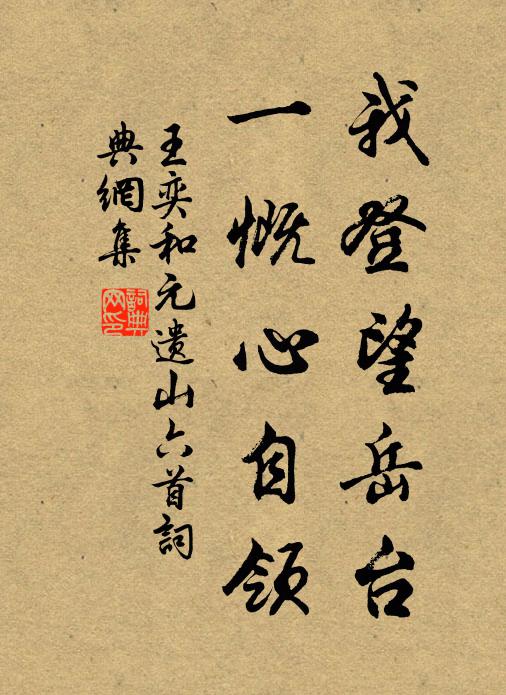 我登望岳台
一慨心自领
王奕和元遗山六首詞
典網集
詞典网印